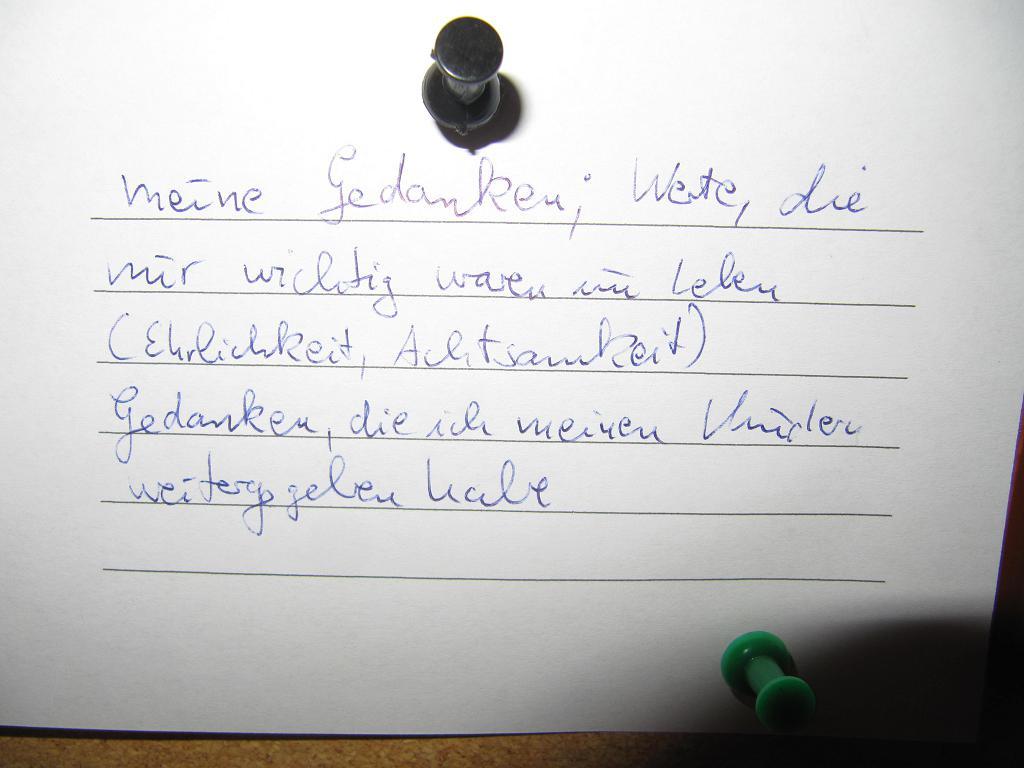 meine Gedanken; Werte, die
mir wichtig waren im Leben
(Ehrlichkeit, Achtsamkeit)
Gedanken, die ich meinen Kindern
weitergegeben habe